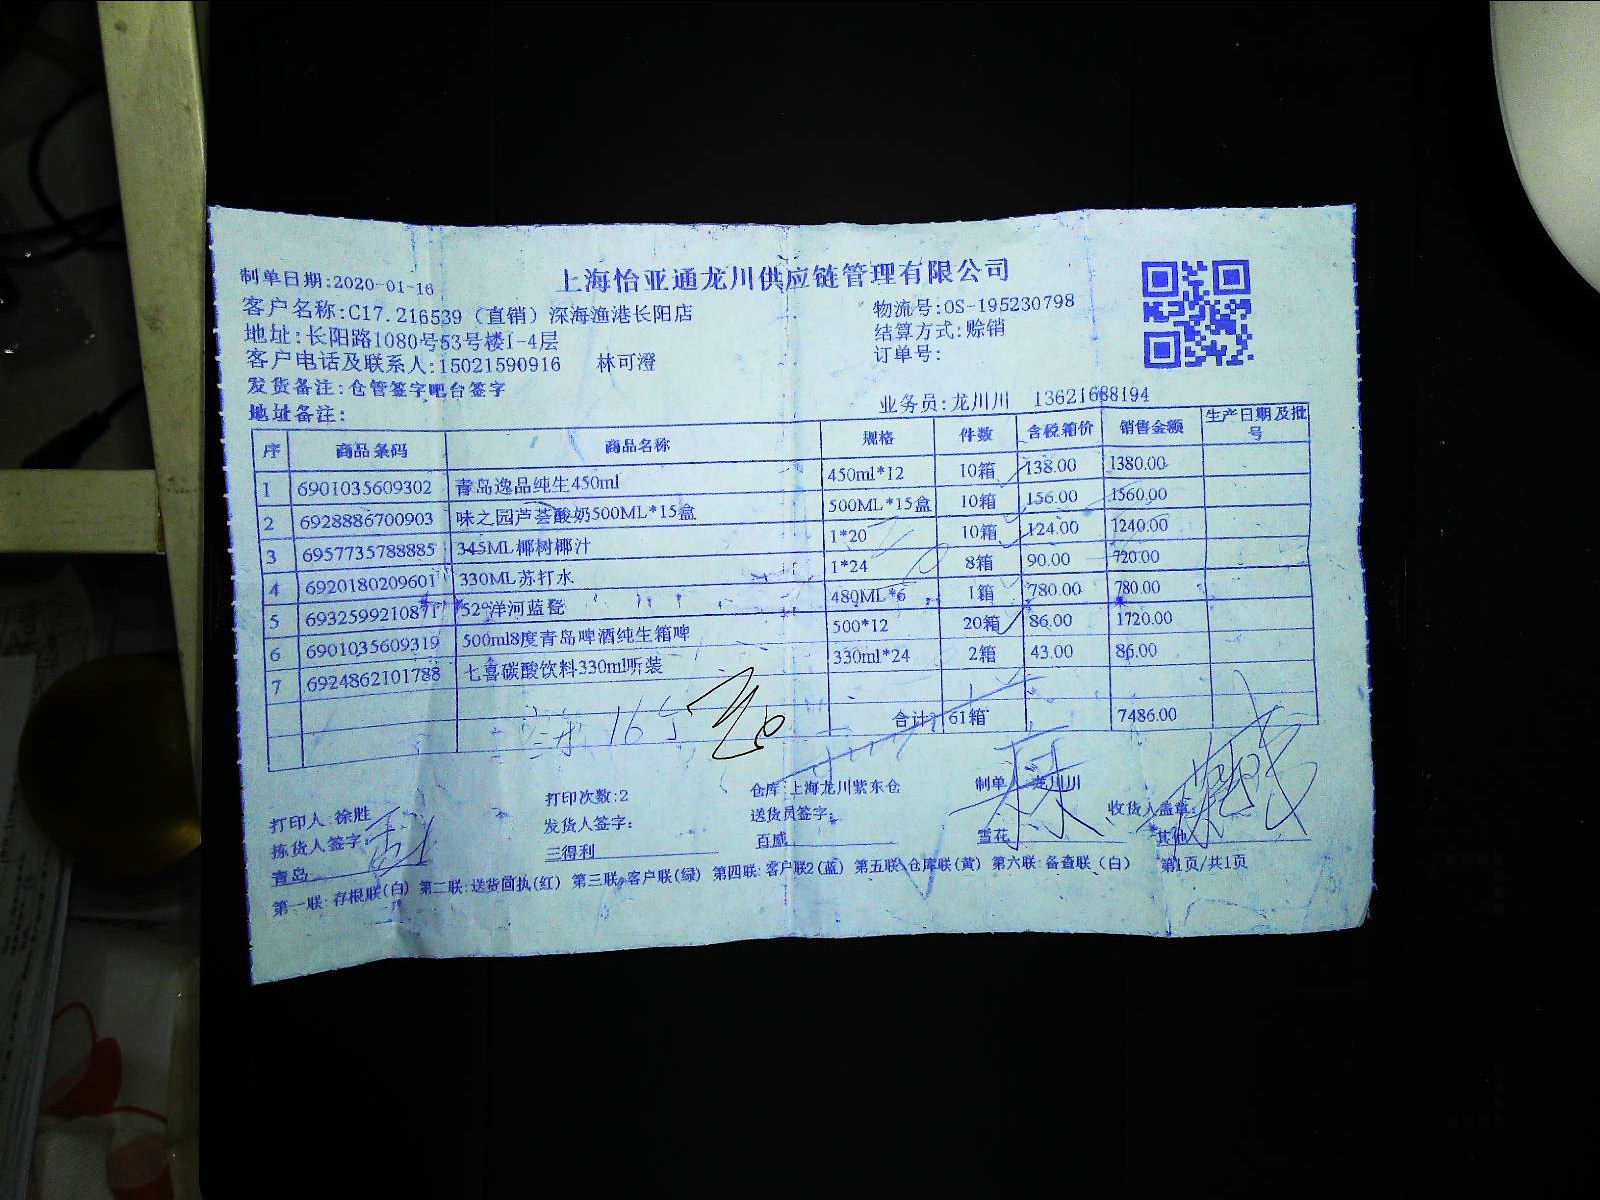 上海怡亚通龙川供应链管理有限公司
制单日期:2020-01-16
客户名称:C17.216539（直销）深海渔港长阳店 物流号:OS-195230798
地址:长阳路1080号53号楼1-4层 结算方式:赊销
客户电话及联系人:15021590916 林可澄 订单号:
发货备注:仓管签字吧台签字
地址备注: 业务员:龙川川 13621688194
序 商品条码 商品名称 规格 件数 含税箱价 销售金额 生产日期及批号
1 6901035609302 青岛逸品纯生450ml 450ml*12 10箱 138.00 1380.00
2 6928886700903 味之园芦荟酸奶500ML*15盒 500ML*15盒 10箱 156.00 1560.00
3 6957735788885 345ML椰树椰汁 1*20 10箱 124.00 1240.00
4 6920180209601 330ML苏打水 1*24 8箱 90.00 720.00
5 6932599210871 52°洋河蓝瓷 480ML*6 1箱 780.00 780.00
6 6901035609319 500ml8度青岛啤酒纯生箱啤 500*12 20箱 86.00 1720.00
7 6924862101788 七喜碳酸饮料330ml听装 330ml*24 2箱 43.00 86.00
合计: 61箱 7486.00
打印人 徐胜 打印次数:2 仓库 上海龙川紫东仓 制单 龙川川 收货人盖章:
拣货人签字: 发货人签字: 送货员签字:
青岛 三得利 百威 雪花 其他
第一联:存根联(白) 第二联:送货回执(红) 第三联:客户联(绿) 第四联:客户联2(蓝) 第五联:仓库联(黄) 第六联:备查联（白） 第1页/共1页